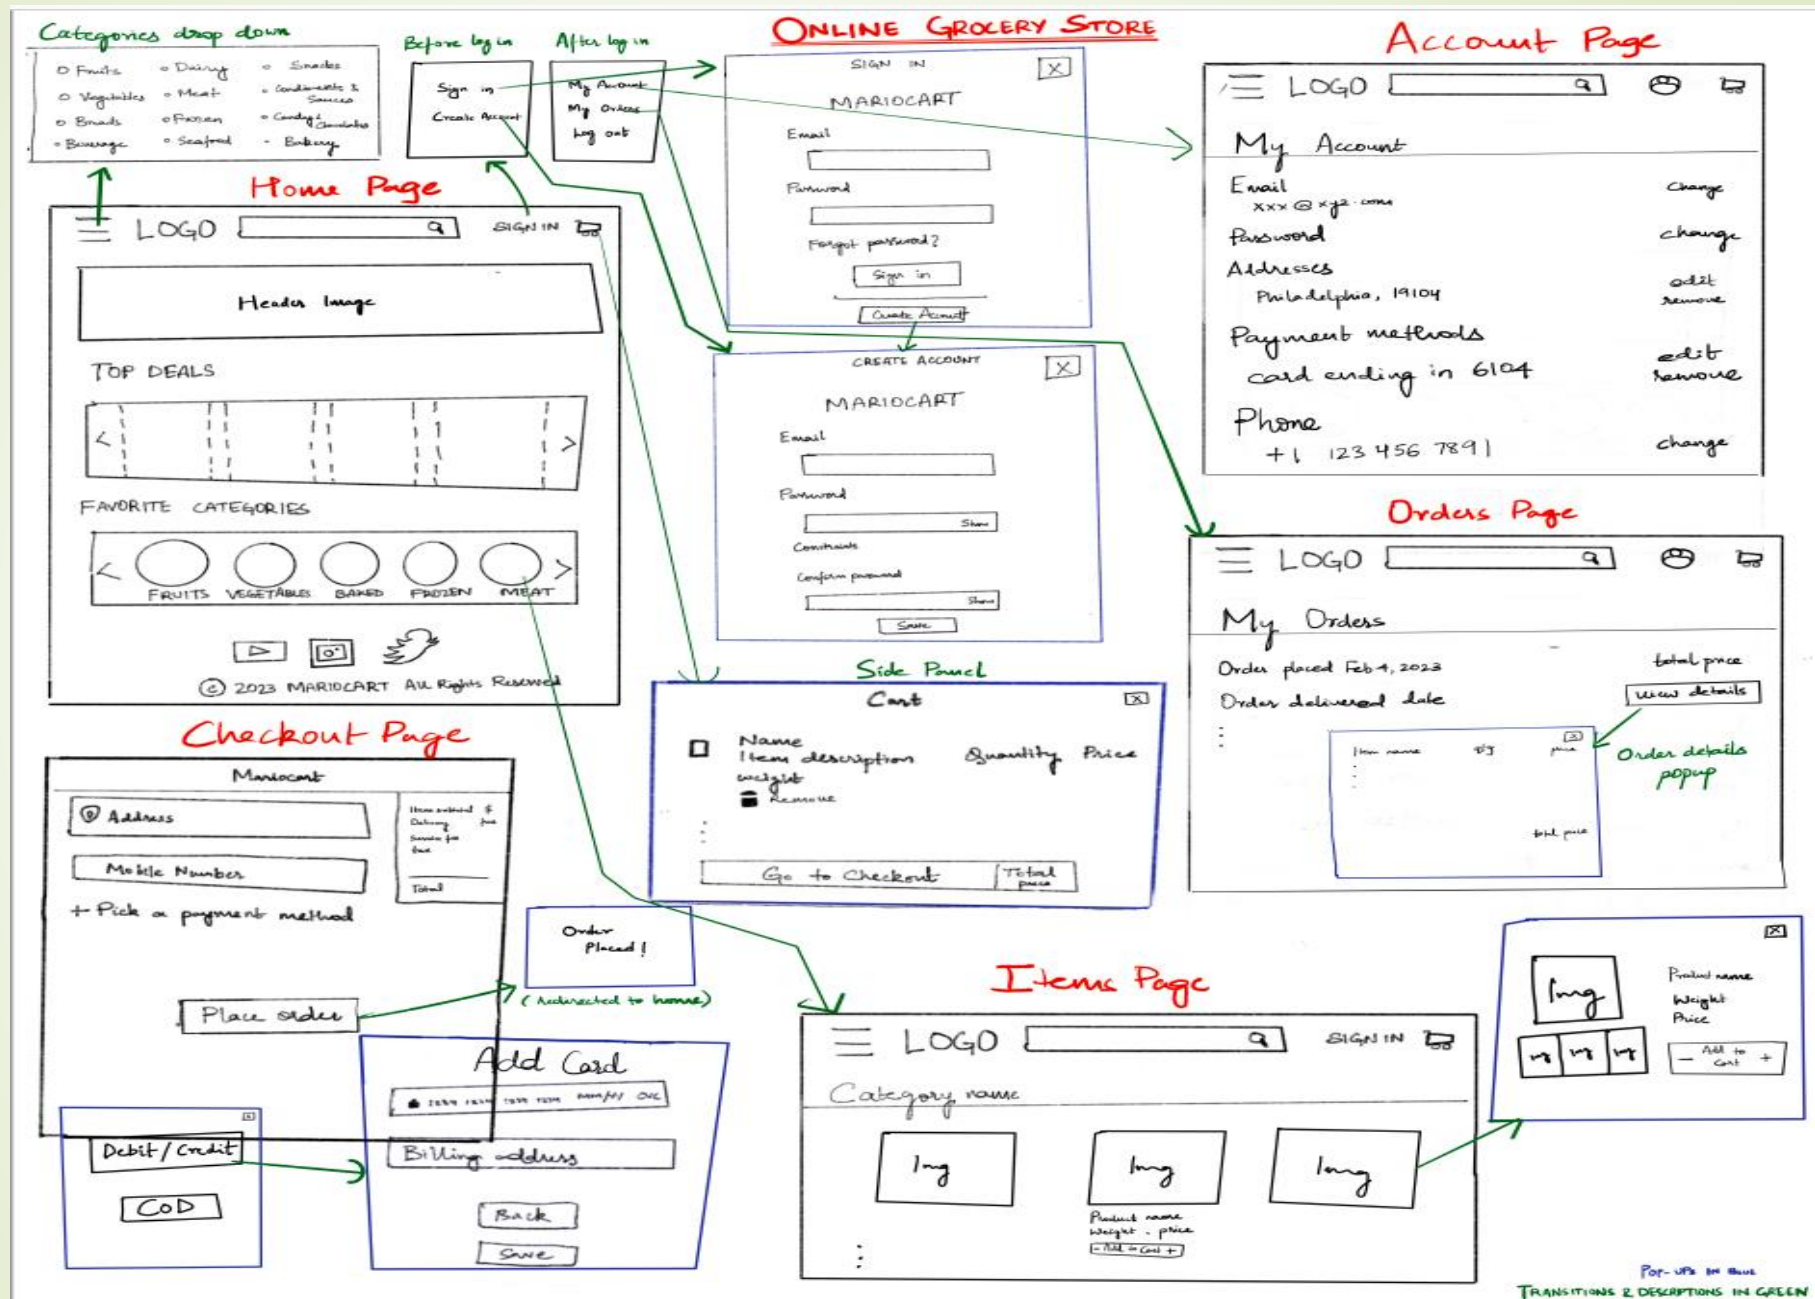 ONLINE GROCERY STORE
Categories drop down
Fruits
Vegetables
Breads
Beverage
Dairy
Meat
Frozen
Seafood
Snacks
Condiments & Sauces
Candy & Chocolates
Bakery
Before log in
Sign in
Create Account
After log in
My Account
My Orders
Log out
SIGN IN
X
MARIOCART
Email
Password
Forgot password?
Sign in
Create Account
CREATE ACCOUNT
X
MARIOCART
Email
Password
Show
Constraints
Confirm password
Show
Save
Account Page
LOGO
My Account
Email
change
xxx@xyz.com
Password
change
Addresses
Philadelphia, 19104
edit
remove
Payment methods
card ending in 6104
edit
remove
Phone
+1 123 456 7891
change
Home Page
LOGO
SIGN IN
Header Image
TOP DEALS
< >
FAVORITE CATEGORIES
< >
FRUITS VEGETABLES BAKED FROZEN MEAT
© 2023 MARIOCART All Rights Reserved
Orders Page
LOGO
My Orders
Order placed Feb 4, 2023
total price
Order delivered date
view details
X
Item name
price
total price
Order details
popup
Side Panel
Cart
X
Name
Item description Quantity Price
weight
Remove
Go to Checkout
Total
price
Checkout Page
Mariocart
Address
Mobile Number
+ Pick a payment method
Item subtotal $
Delivery fee
Service fee
tax
Total
Place order
Order
Placed!
(redirected to home)
X
Debit/Credit
COD
Add Card
1234 1234 1234 1234 mm/yy CVC
Billing address
Back
Save
Items Page
LOGO
SIGN IN
Category name
Img
Img
Img
Product name
Weight - price
- Add to Cart +
X
Img
Img Img Img
Product name
Weight
Price
- Add to +
Cart
POP-UPS IN BLUE
TRANSITIONS & DESCRIPTIONS IN GREEN